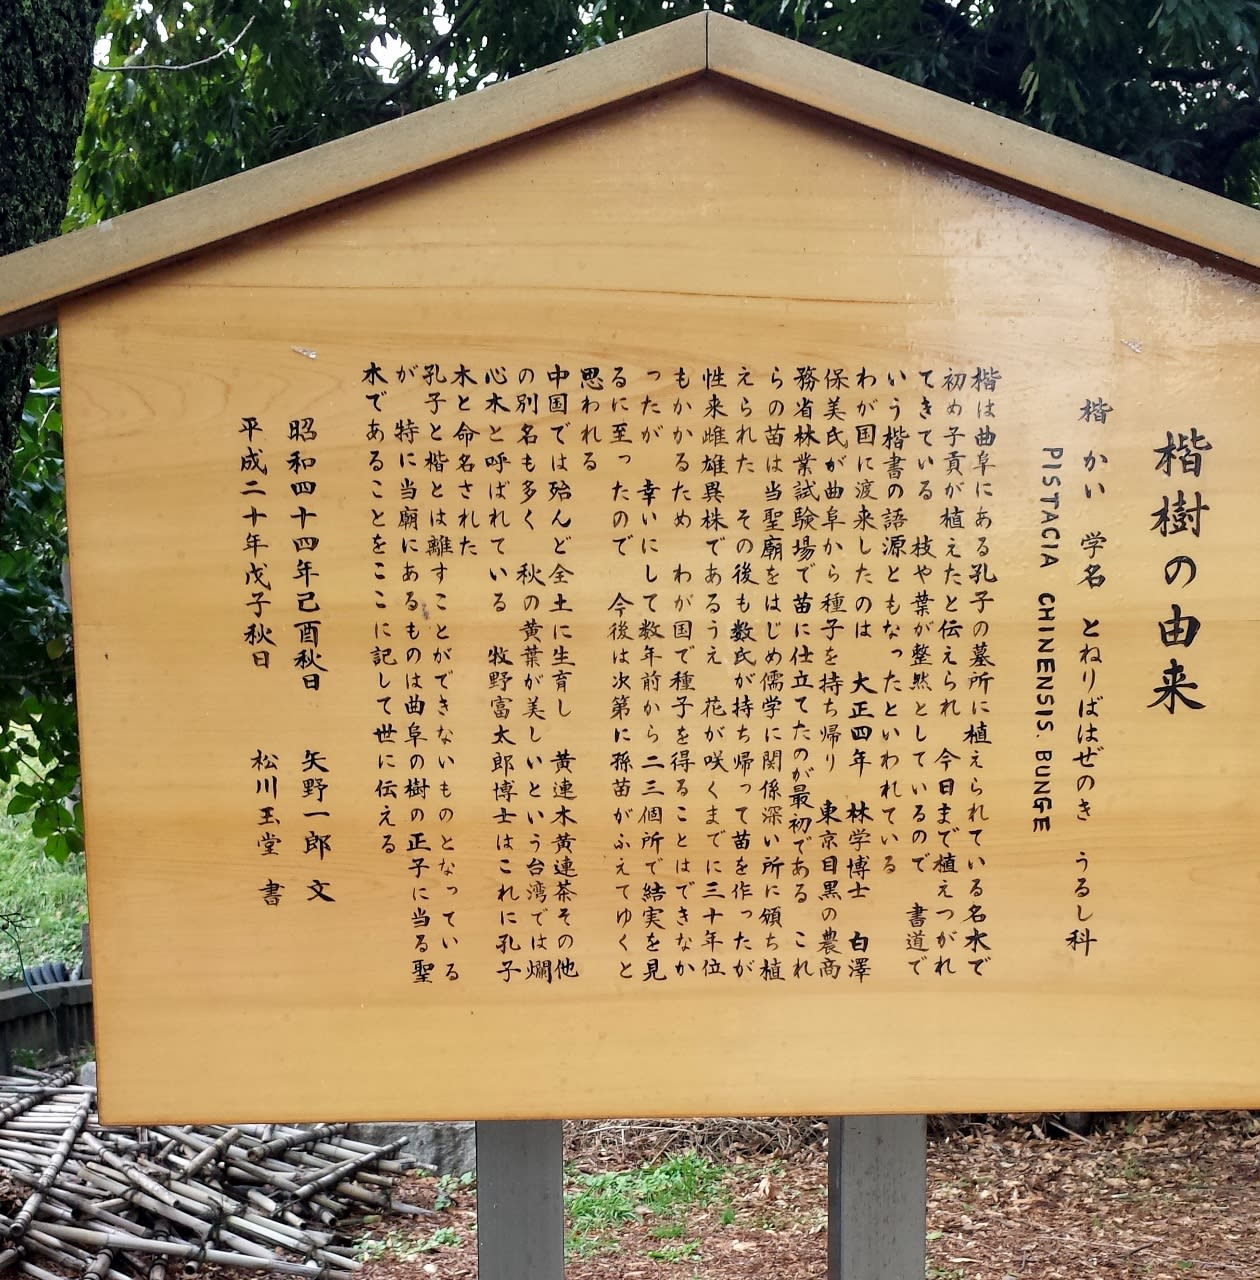 楷樹の由来
楷 かい 学名 とねりばはぜのき うるし科
PISTACIA CHINENSIS. BUNGE
楷は曲阜にある孔子の墓所に植えられている名木で
初め子貢が植えたと伝えられ 今日まで植えつがれ
てきている 枝や葉が整然としているので 書道で
いう楷書の語源ともなったといわれている
わが国に渡来したのは 大正四年 林学博士 白澤
保美氏が曲阜から種子を持ち帰り 東京目黒の農商
務省林業試験場で苗に仕立てたのが最初である これ
らの苗は当聖廟をはじめ儒学に関係深い所に頒ち植
えられた その後も数氏が持ち帰って苗を作ったが
性来雌雄異株であるうえ 花が咲くまでに三十年位
もかかるため わが国で種子を得ることはできなか
ったが 幸いにして数年前から二三個所で結実を見
るに至ったので 今後は次第に孫苗がふえてゆくと
思われる
中国では殆んど全土に生育し 黄連木黄連茶その他
の別名も多く 秋の黄葉が美しいという台湾では爛
心木と呼ばれている 牧野富太郎博士はこれに孔子
木と命名された
孔子と楷とは離すことができないものとなっている
が 特に当廟にあるものは曲阜の樹の正子に当る聖
木であることをここに記して世に伝える
昭和四十四年己酉秋日 矢野一郎 文
平成二十年戊子秋日 松川玉堂 書